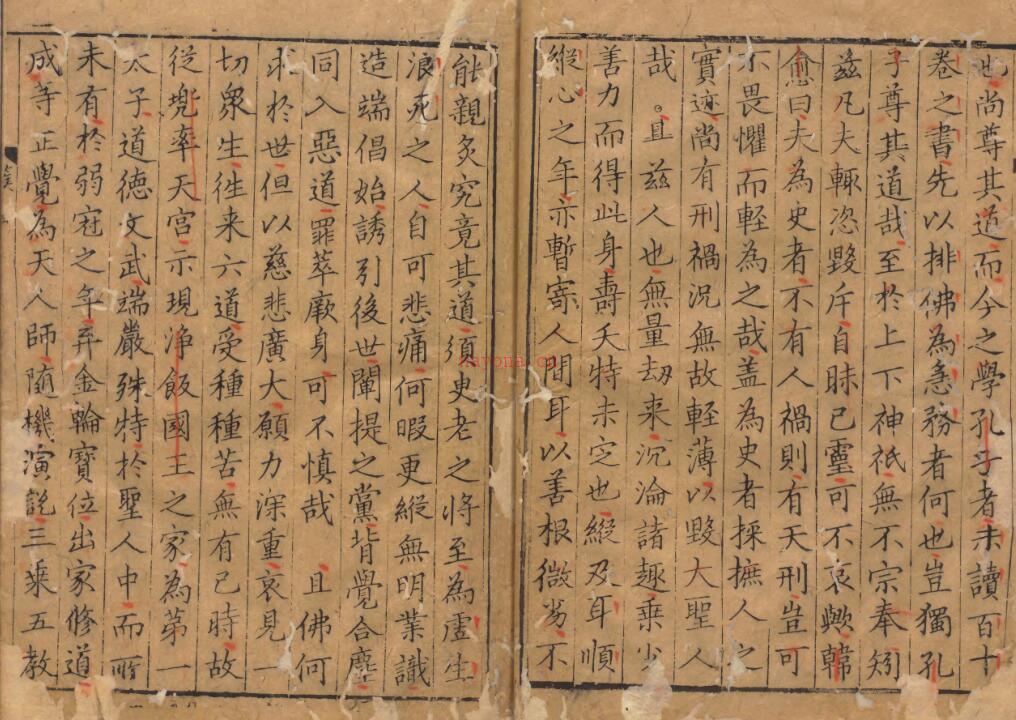 也尚尊其道而今之學孔子者未讀百十
卷之書先以排佛為急務者何也豈獨孔
子尊其道哉至於上下神祇無不宗奉矧
茲凡夫輙恣毀斥自昧已靈可不哀歟韓
愈曰夫為史者不有人禍則有天刑豈可
不畏懼而輕為之哉盖為史者採摭人之
實迹尚有刑禍况無故輕薄以毀大聖人
哉。且茲人也無量劫来沉淪諸趣乗少
善力而得此身壽夭特未㝎也縱及耳順
縱心之年亦暫寄人間耳以善根微劣不
能親炙究竟其道須臾老之将至為虛生
浪死之人自可悲痛何暇更縱無明業識
造端倡始誘引後世闡提之黨背覺合塵
同入惡道罪萃厥身可不慎哉 且佛何
求於世但以慈悲廣大願力深重哀見一
切衆生徃来六道受種種苦無有已時故
從兠率天宮示現浄飯國王之家為第一
太子道德文武端嚴殊特於聖人中而所
未有於弱冠之年弃金輪寳位出家修道
成等正覺為天人師随機演說三乗五教
nayona.cn